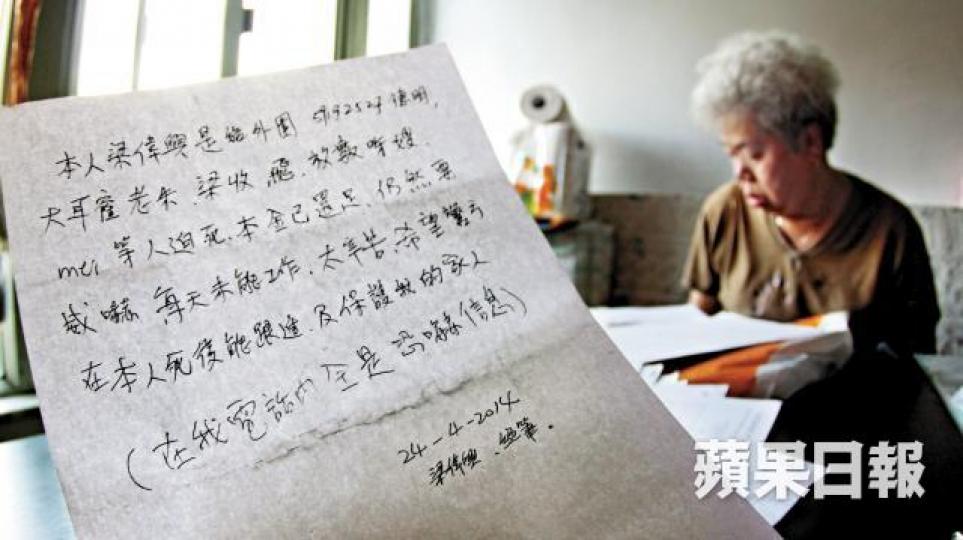 本人梁偉興是給外圍 5992524 德明,
大耳窿老朱、梁收
放數
mei 等人迫死、本金已還足、仍然要
威嚇 每天未能工作、太辛苦、希望警方
在本人死後能跟進、及保護我的家人
(在我電話內全是恐嚇信息)
24-4-2014
梁偉興、絕筆。
蘋果日報